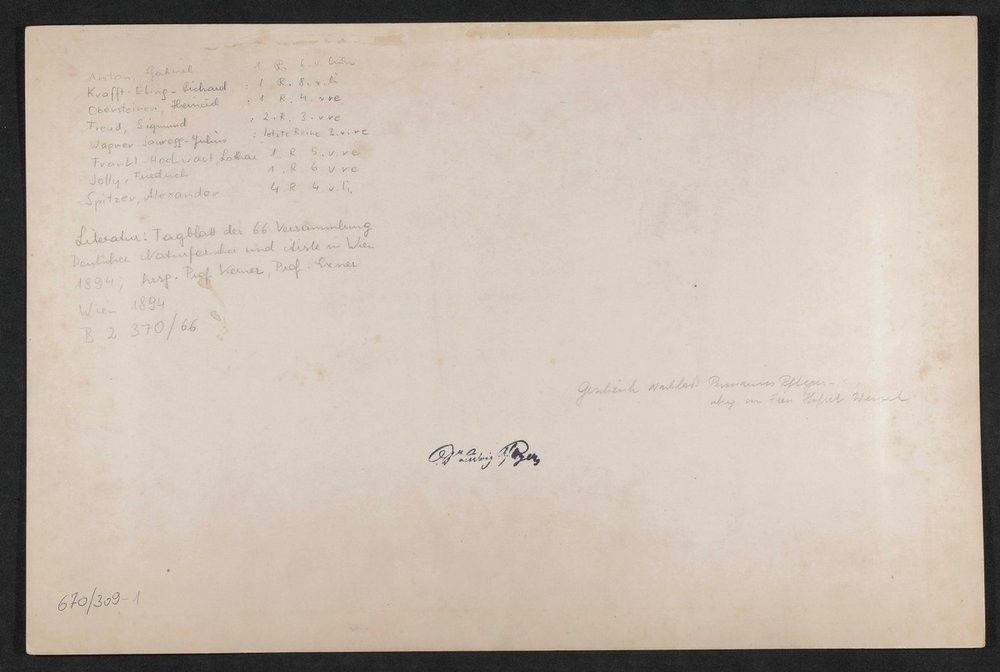 Anton, Gabriel 1 R. 6. v. 
Krafft-Ebing-Richard : 1 R. 8. v. li
Obersteiner, Heinrich : 1 R. 4. v re
Freud, Sigmund : 2. R. 3. v re
Wagner-Jauregg-Julius : letzte Reihe 3. v. re
Frankl-Hochwart, Lothar 1 R 5. v. re
Jolly, Friedrich 1. R 6. v re
Spitzer, Alexander 4. R 4. v li,
Literatur: Tagblatt der 66 Versammlung
Deutscher Naturforscher und Ärzte in Wien
1894, hrsg. Prof Kerner, Prof. Exner
Wien 1894
B 2 370/66
Geschenk Nachlaß
Frau Hofrat
Dr
670/309-1